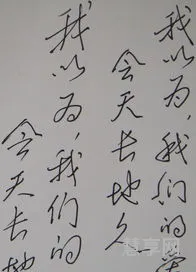 我以为,我们的
会天长地久
我以为,我们的
会天长地
慧享网